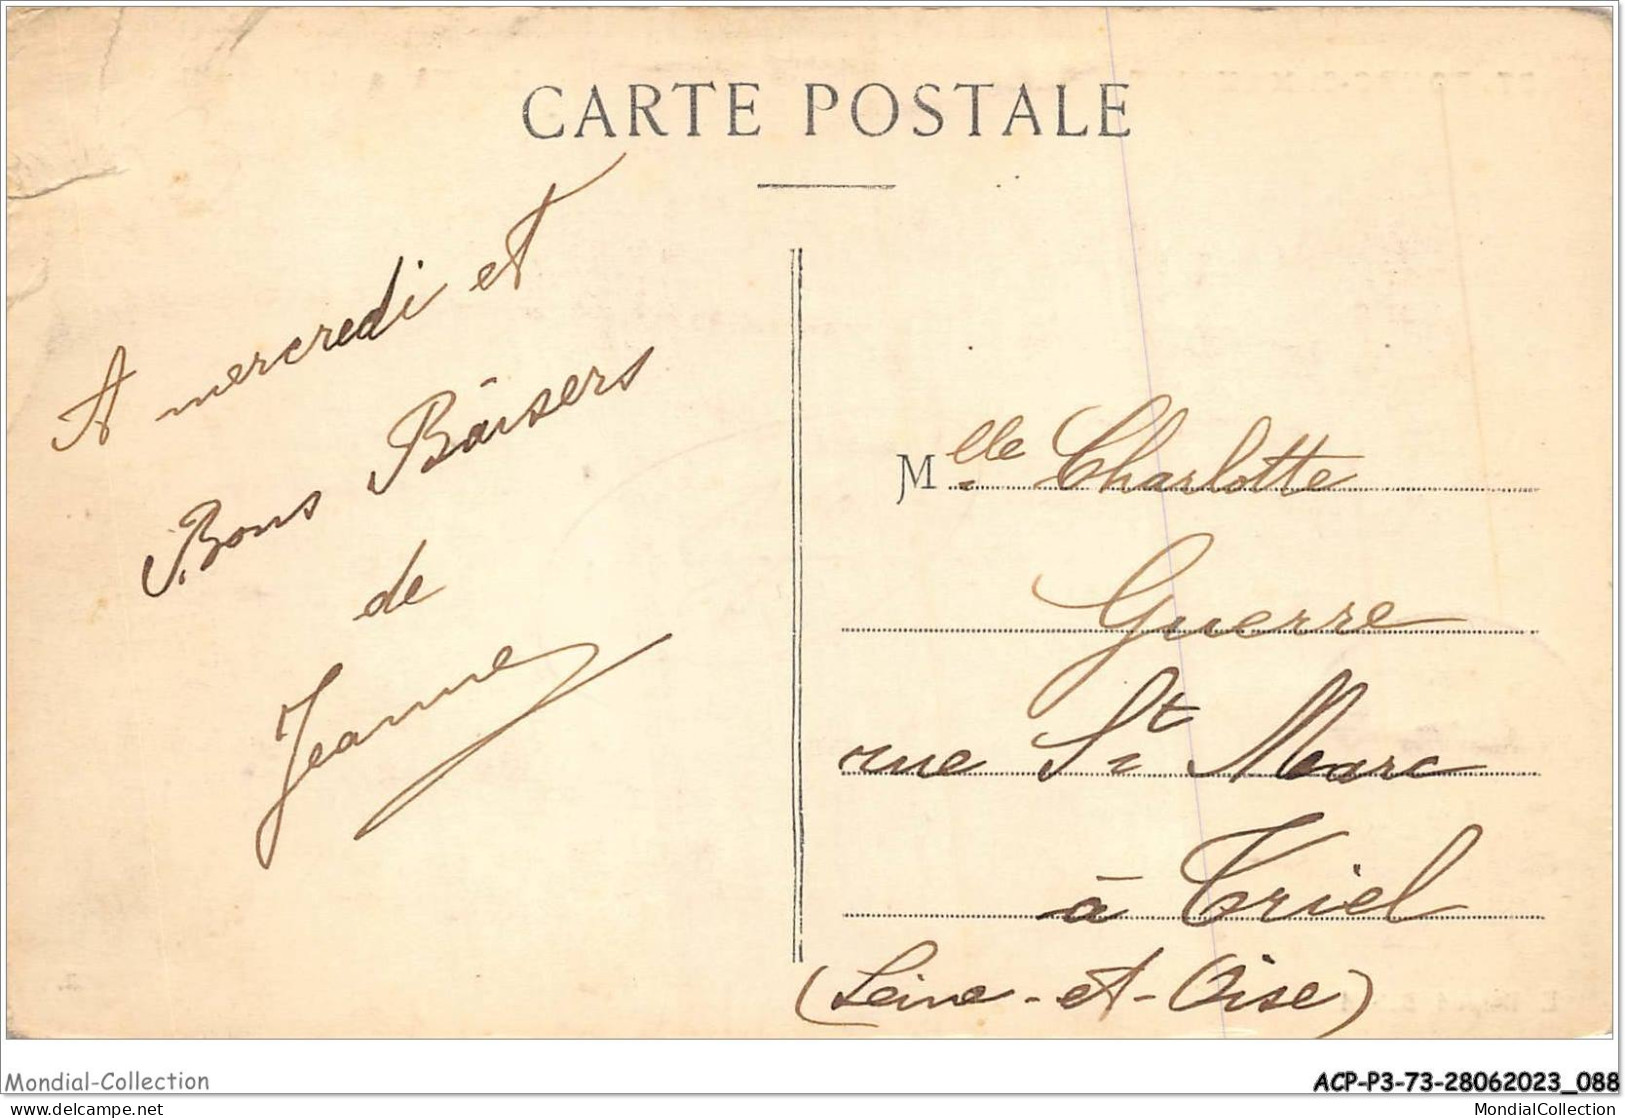 CARTE POSTALE
A mercredi et
Bons Baisers
de
Jeanne
Mlle Charlotte
Guerre
rue St Marc
à Triel
(Seine-et-Oise)
Mondial-Collection
ACP-P3-73-28062023_088
www.delcampe.net
MondialCollection